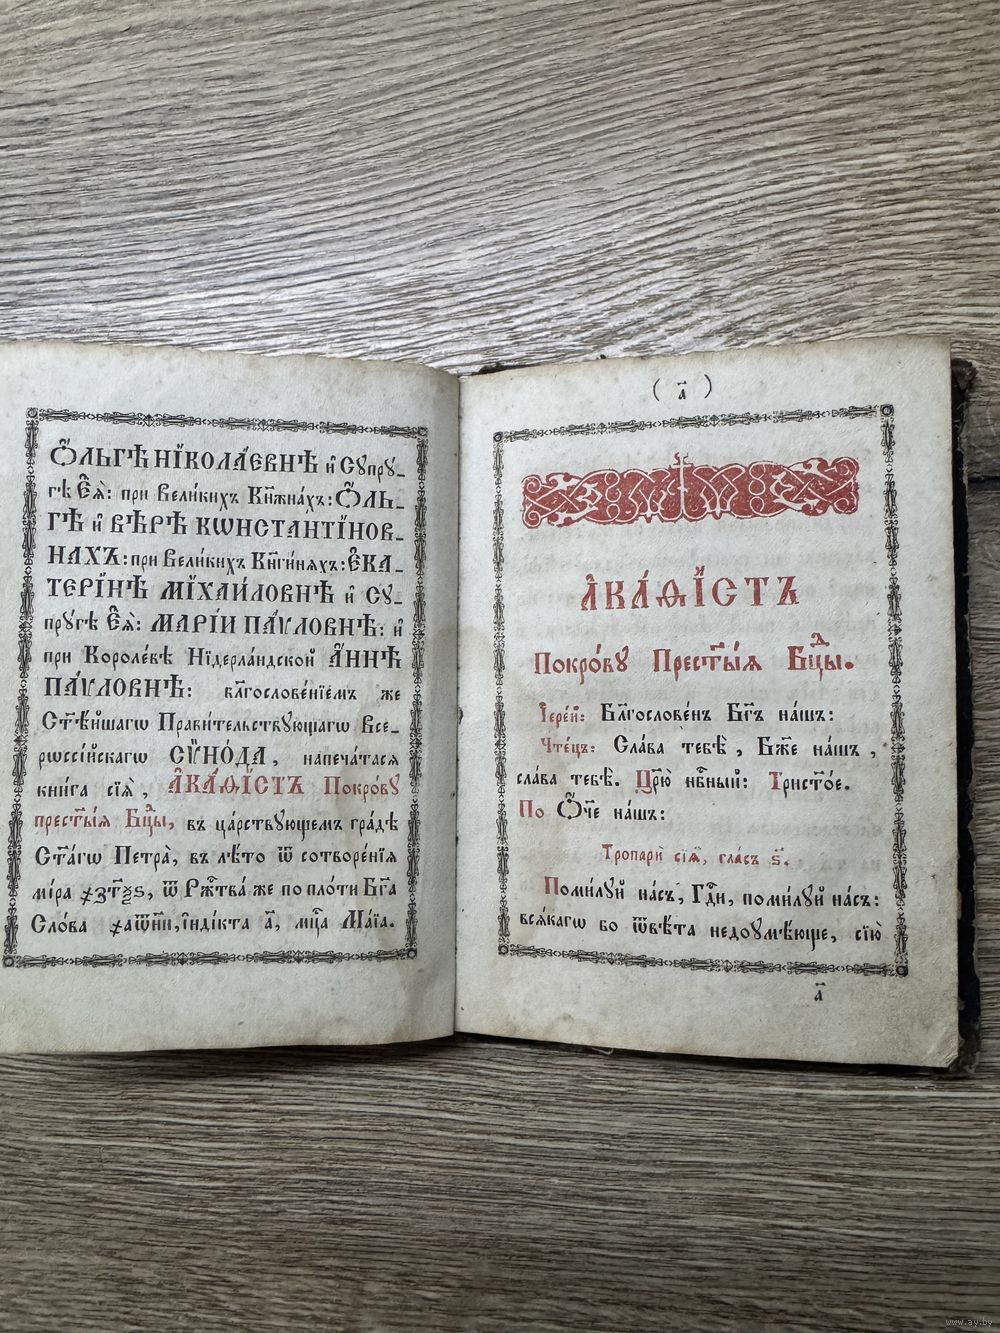 Ѻ҆́льгѣ Нїкола́евнѣ и҆ Сꙋпрꙋ-
гѣ Е҆ѧ̀: при Вели́кихъ Кнѧжна́хъ: Ѻ҆́ль-
гѣ и҆ Вѣ́рѣ Кѡнстантї́нов-
нахъ: при Вели́кихъ Кнѧги́нѧхъ: Е҆ка-
терї́нѣ Мїха́иловнѣ и҆ Сꙋ-
прꙋ́гѣ Е҆ѧ̀: Марі́и Па́ѵловнѣ: и҆
при Короле́вѣ Нїдерла́ндской А҆́ннѣ
Па́ѵловнѣ: бл҃гослове́нїемъ же
Ст҃ѣ́йшагѡ Прави́тельствꙋющагѡ Все-
рѡссі́йскагѡ Сѷно́да, напеча́тасѧ
кни́га сїѧ̀, А҆ка́ѳїстъ Покро́вꙋ
прест҃ы́ѧ Бцⷣы, въ ца́рствꙋющемъ гра́дѣ
Ст҃а́гѡ Петра̀, въ лѣ́то ѿ сотворе́нїѧ
мі́ра ҂зт҃ѯѕ, ѿ Рж҃тва́ же по пло́ти Бг҃а
Сло́ва ҂аѿни҃, і҆нді́кта а҃, мцⷭ҇а Маі́а.
( а҃ )
А҆ка́ѳїстъ
Покро́вꙋ Прест҃ы́ѧ Бцⷣы.
І҆ере́й: Бл҃гослове́нъ Бг҃ъ на́шъ:
Чте́цъ: Сла́ва тебѣ̀, Бж҃е на́шъ,
сла́ва тебѣ̀. Цр҃ю̀ нб҃ный: Трист҃о́е.
По Ѻ҆́ч҃е на́шъ:
Тропарѝ сїѧ̀, гла́съ ѕ҃.
Поми́лꙋй на́съ, Гдⷭ҇и, поми́лꙋй на́съ:
всѧ́кагѡ бо ѿвѣ́та недоꙋмѣ́юще, сїю̀
а҃
www.ay.by